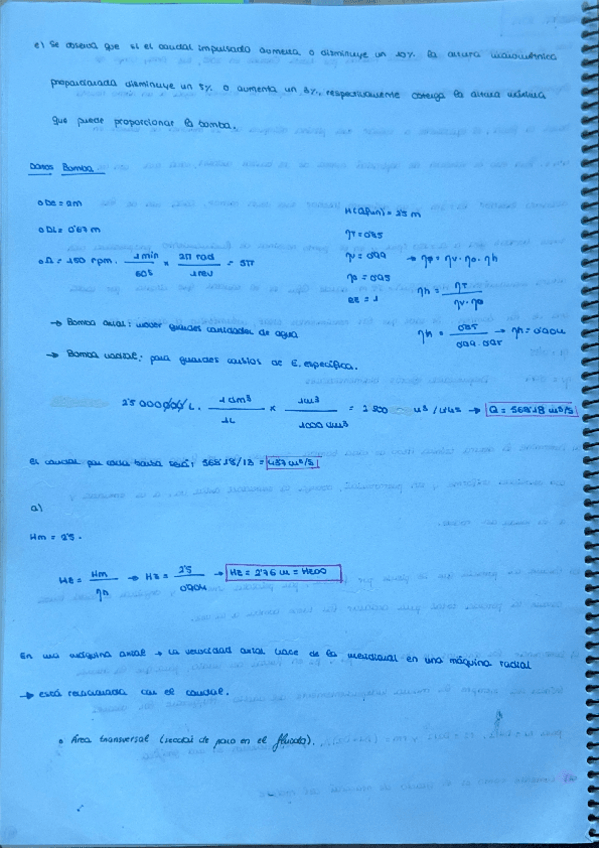 e) Se observa que si el caudal impulsado aumenta o disminuye un 10% la altura manométrica
proporcionada disminuye un 5% o aumenta un 3%, respectivamente obtenga la altura máxima
que puede proporcionar la bomba.
Datos Bomba
o De = 2m
o Di = 0'67 m
o Ω = 150 rpm. 1 min / 60 s × 2π rad / 1 rev = 5π
H(Qfun) = 2'5 m
ηT = 0'85
ηv = 0'99 → ηT = ηv·ηo·ηh
ηo = 0'95
ez = 1
ηh = ηT / ηv·ηo
ηh = 0'85 / 0'99·0'95 → ηh = 0'904
→ Bomba axial: mover grandes cantidades de agua
→ Bomba radial: para grandes cambios de E. específica.
→ Q = 568'18 m³/s
el caudal por cada bomba será: 568'18/13 = 43'7 m³/s
a)
Hm = 2'5.
He = Hm / ηh → He = 2'5 / 0'904 → He = 2'76 m = He∞
En una máquina axial → la velocidad axial hace de la meridional en una máquina radial
→ está relacionada con el caudal.
• Área transversal (sección de paso en el fluido).